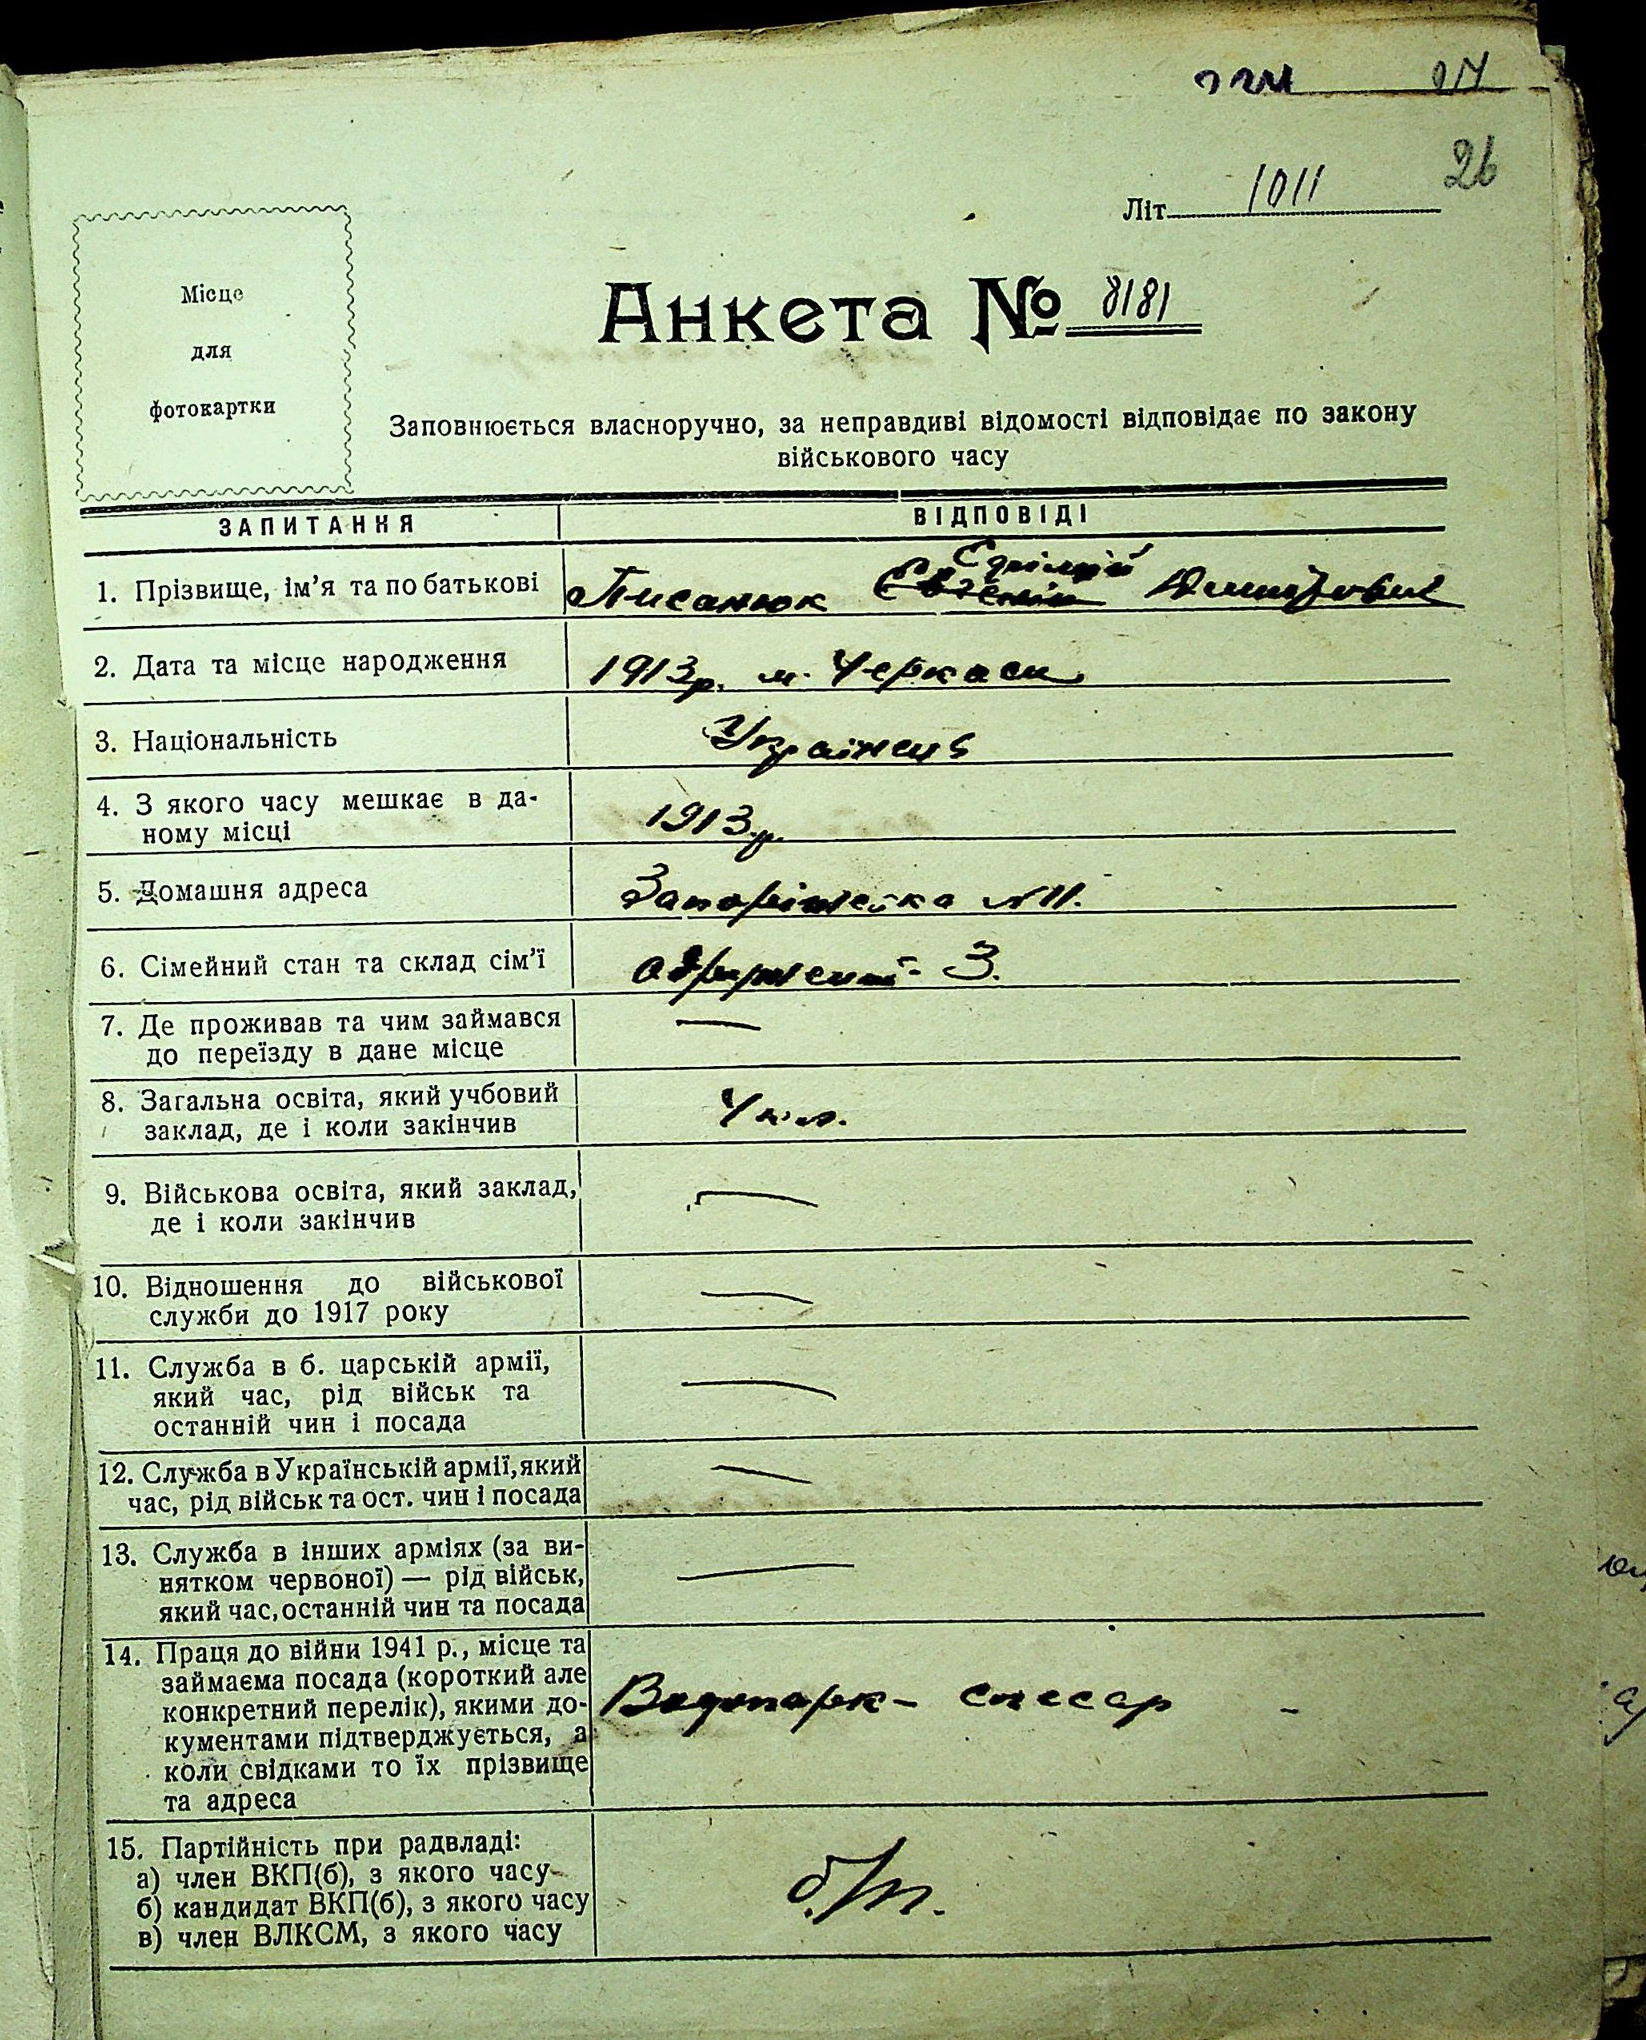 26
Літ 1011
Місце
для
фотокартки
Анкета № 8181
Заповнюється власноручно, за неправдиві відомості відповідає по закону
військового часу
ЗАПИТАННЯ ВІДПОВІДІ
1. Прізвище, ім'я та по батькові Писанюк Дмитрович
2. Дата та місце народження 1913р. м. Черкаси
3. Національність Українець
4. З якого часу мешкає в да-
ному місці 1913р.
5. Домашня адреса Запоріжська №11.
6. Сімейний стан та склад сім'ї одружений - 3.
7. Де проживав та чим займався —
до переїзду в дане місце
8. Загальна освіта, який учбовий 4 кл.
заклад, де і коли закінчив
9. Військова освіта, який заклад, —
де і коли закінчив
10. Відношення до військової —
служби до 1917 року
11. Служба в б. царській армії, —
який час, рід військ та
останній чин і посада
12. Служба в Українській армії, який —
час, рід військ та ост. чин і посада
13. Служба в інших арміях (за ви- —
нятком червоної) — рід військ,
який час, останній чин та посада
14. Праця до війни 1941 р., місце та
займаєма посада (короткий але
конкретний перелік), якими до- Водопарк - слесар -
кументами підтверджується, а
коли свідками то їх прізвище
та адреса
15. Партійність при радвладі:
а) член ВКП(б), з якого часу б/п.
б) кандидат ВКП(б), з якого часу
в) член ВЛКСМ, з якого часу